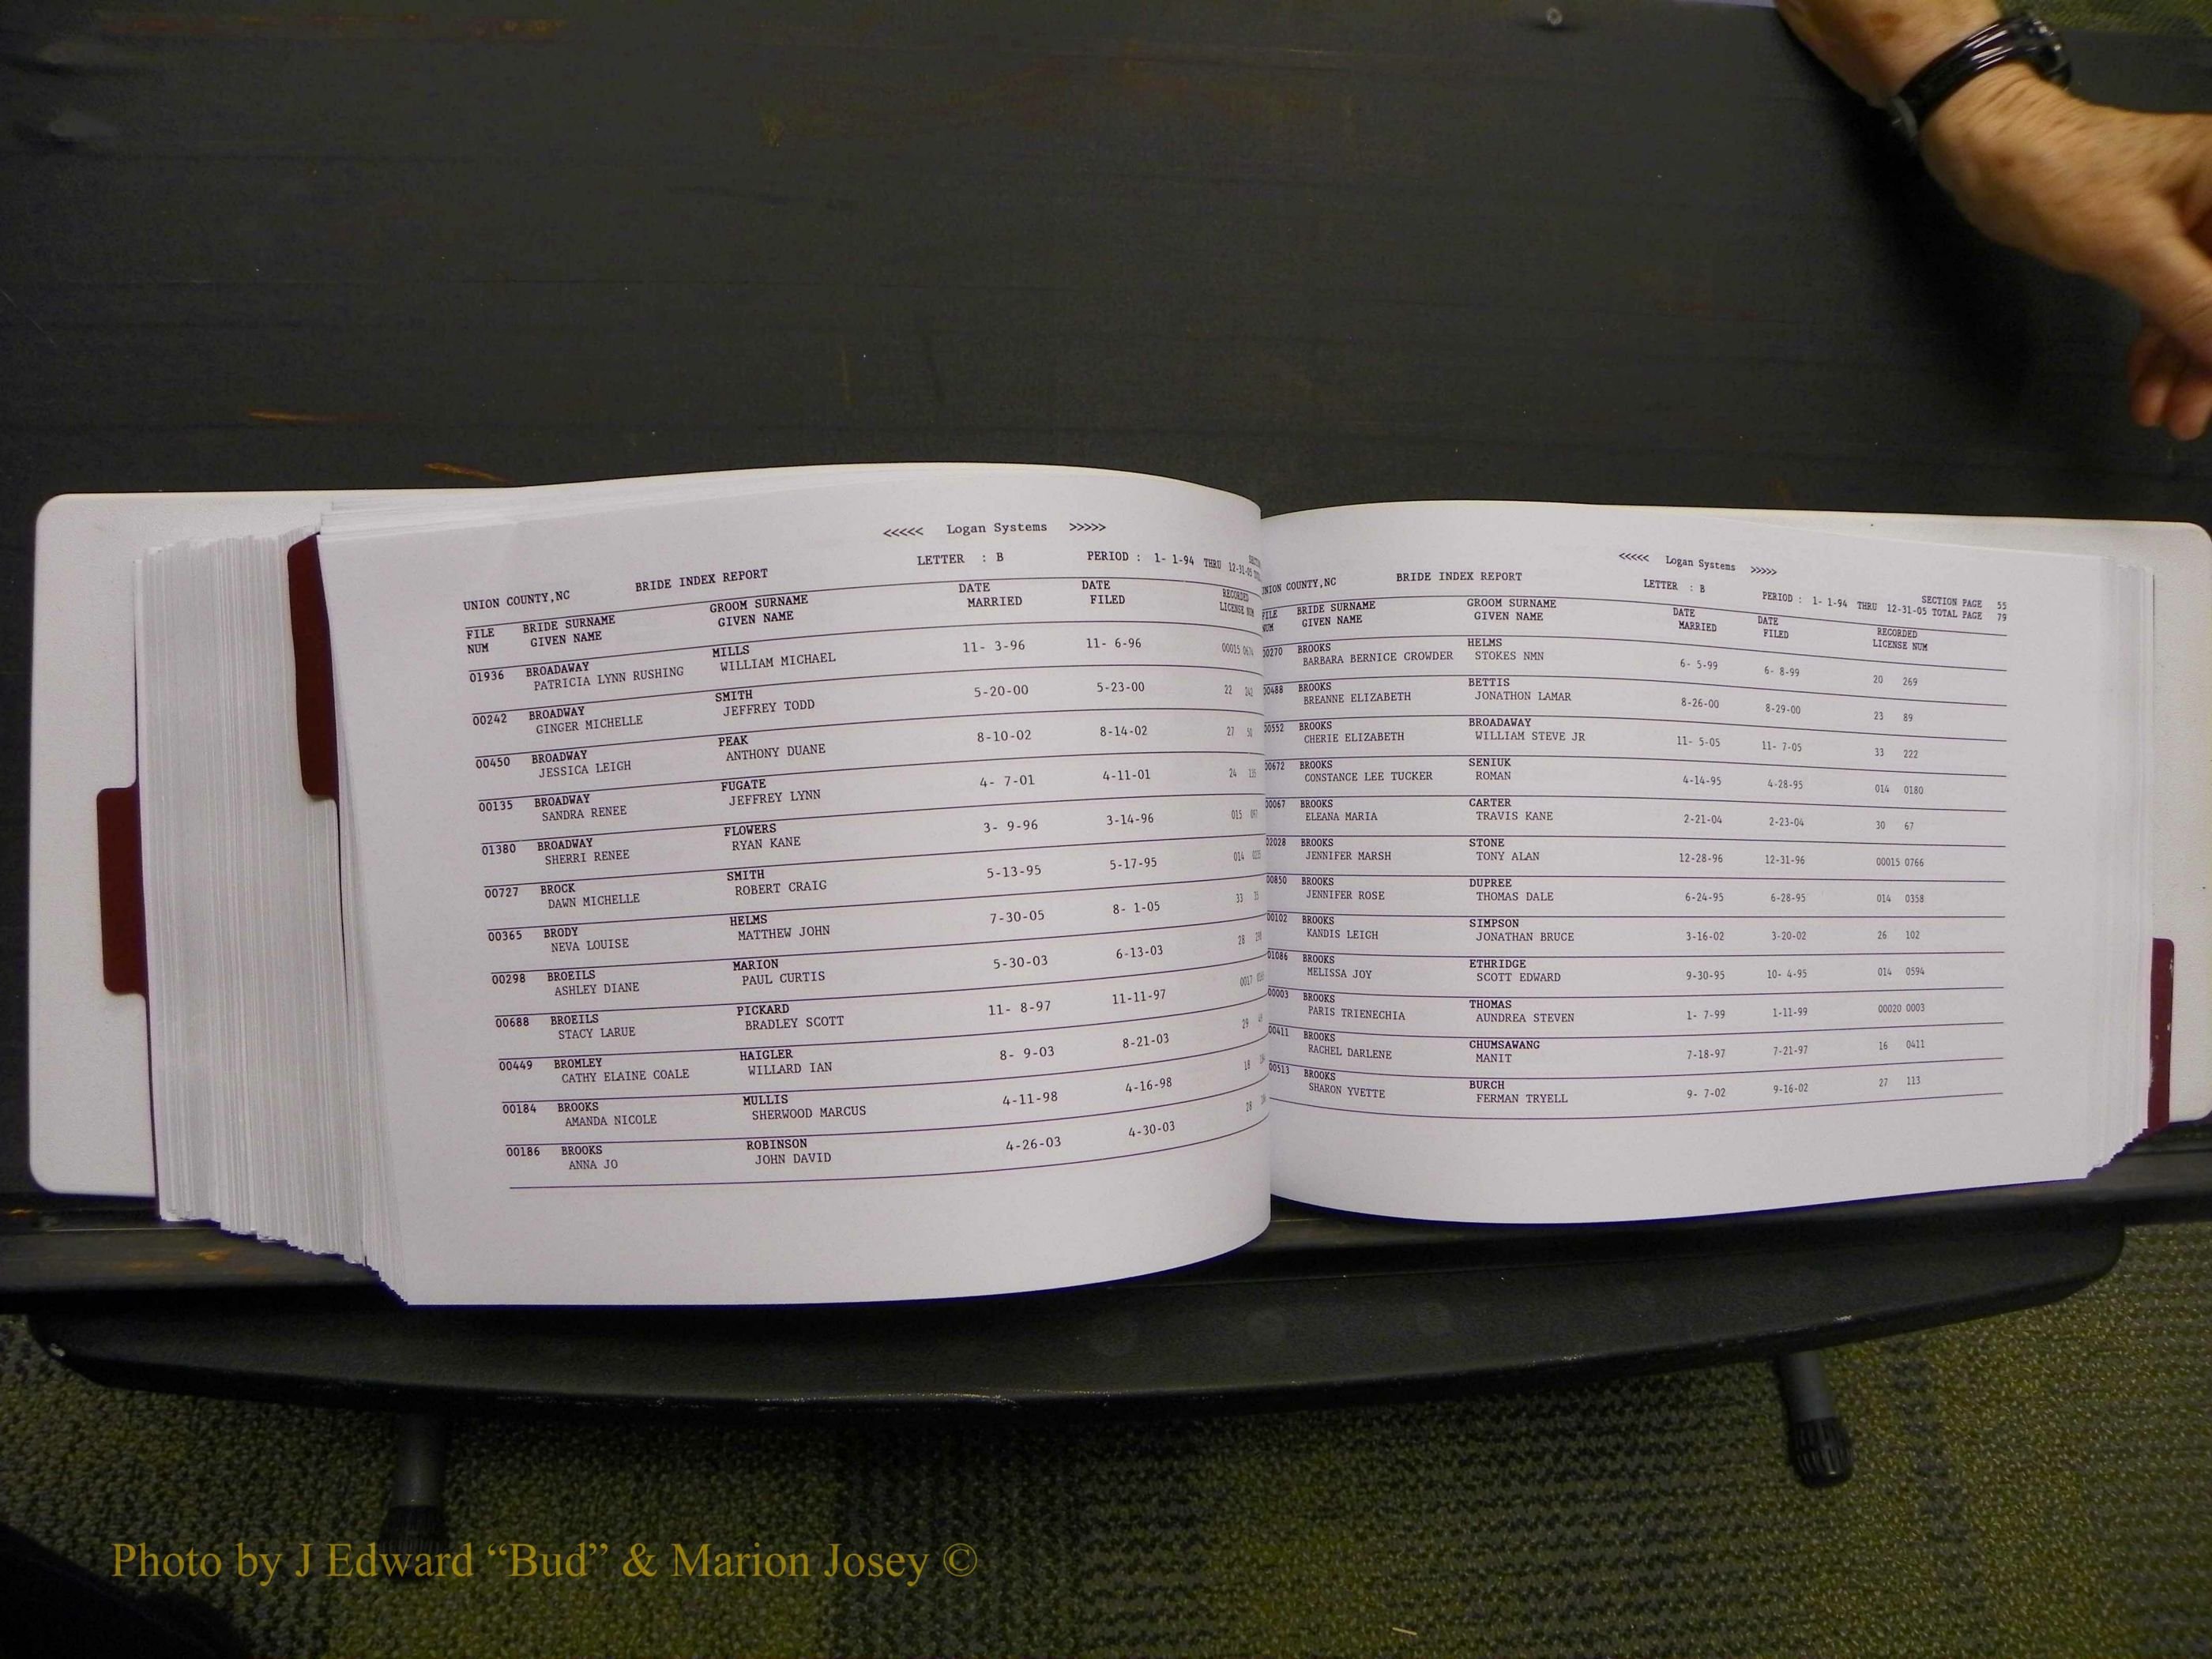 <<<<< Logan Systems >>>>>
UNION COUNTY,NC BRIDE INDEX REPORT LETTER : B PERIOD : 1- 1-94 THRU 12-31-05
FILE BRIDE SURNAME GROOM SURNAME DATE DATE RECORDED
NUM GIVEN NAME GIVEN NAME MARRIED FILED LICENSE NUM
01936 BROADAWAY MILLS 11- 3-96 11- 6-96 00015
PATRICIA LYNN RUSHING WILLIAM MICHAEL
00242 BROADWAY SMITH 5-20-00 5-23-00 22
GINGER MICHELLE JEFFREY TODD
00450 BROADWAY PEAK 8-10-02 8-14-02 27
JESSICA LEIGH ANTHONY DUANE
00135 BROADWAY FUGATE 4- 7-01 4-11-01 24
SANDRA RENEE JEFFREY LYNN
01380 BROADWAY FLOWERS 3- 9-96 3-14-96 015
SHERRI RENEE RYAN KANE
00727 BROCK SMITH 5-13-95 5-17-95 014
DAWN MICHELLE ROBERT CRAIG
00365 BRODY HELMS 7-30-05 8- 1-05 33
NEVA LOUISE MATTHEW JOHN
00298 BROEILS MARION 5-30-03 6-13-03 28
ASHLEY DIANE PAUL CURTIS
00688 BROEILS PICKARD 11- 8-97 11-11-97 0017
STACY LARUE BRADLEY SCOTT
00449 BROMLEY HAIGLER 8- 9-03 8-21-03 29
CATHY ELAINE COALE WILLARD IAN
00184 BROOKS MULLIS 4-11-98 4-16-98 18
AMANDA NICOLE SHERWOOD MARCUS
00186 BROOKS ROBINSON 4-26-03 4-30-03 28
ANNA JO JOHN DAVID
<<<<< Logan Systems >>>>>
UNION COUNTY,NC BRIDE INDEX REPORT LETTER : B SECTION PAGE 55
PERIOD : 1- 1-94 THRU 12-31-05 TOTAL PAGE 79
FILE BRIDE SURNAME GROOM SURNAME DATE DATE RECORDED
NUM GIVEN NAME GIVEN NAME MARRIED FILED LICENSE NUM
00270 BROOKS HELMS 6- 5-99 6- 8-99 20 269
BARBARA BERNICE CROWDER STOKES NMN
00488 BROOKS BETTIS 8-26-00 8-29-00 23 89
BREANNE ELIZABETH JONATHON LAMAR
00552 BROOKS BROADAWAY 11- 5-05 11- 7-05 33 222
CHERIE ELIZABETH WILLIAM STEVE JR
00672 BROOKS SENIUK 4-14-95 4-28-95 014 0180
CONSTANCE LEE TUCKER ROMAN
00067 BROOKS CARTER 2-21-04 2-23-04 30 67
ELEANA MARIA TRAVIS KANE
02028 BROOKS STONE 12-28-96 12-31-96 00015 0766
JENNIFER MARSH TONY ALAN
00850 BROOKS DUPREE 6-24-95 6-28-95 014 0358
JENNIFER ROSE THOMAS DALE
00102 BROOKS SIMPSON 3-16-02 3-20-02 26 102
KANDIS LEIGH JONATHAN BRUCE
01086 BROOKS ETHRIDGE 9-30-95 10- 4-95 014 0594
MELISSA JOY SCOTT EDWARD
00003 BROOKS THOMAS 1- 7-99 1-11-99 00020 0003
PARIS TRIENECHIA AUNDREA STEVEN
00411 BROOKS CHUMSAWANG 7-18-97 7-21-97 16 0411
RACHEL DARLENE MANIT
00513 BROOKS BURCH 9- 7-02 9-16-02 27 113
SHARON YVETTE FERMAN TRYELL
Photo by J Edward “Bud” & Marion Josey ©